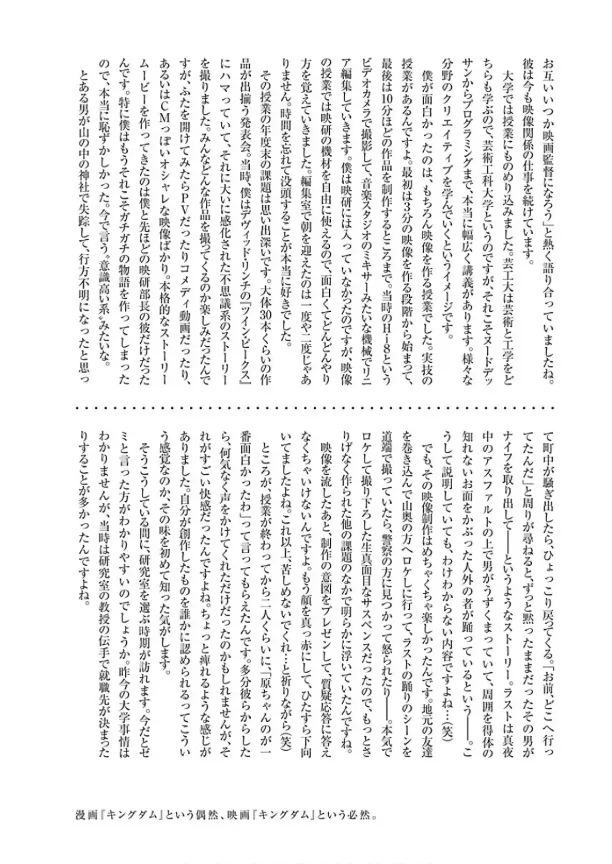 お互いいつか映画監督になろう」と熱く語り合っていましたね。
彼は今も映像関係の仕事を続けています。
大学では授業にものめり込みました。芸工大は芸術と工学をど
ちらも学ぶので、芸術工科大学というのですが、それこそヌードデッ
サンからプログラミングまで、本当に幅広く講義があります。様々な
分野のクリエイティブを学んでいくというイメージです。
僕が面白かったのは、もちろん映像を作る授業でした。実技の
授業があるんですよ。最初は3分の映像を作る段階から始まって、
最後は10分ほどの作品を制作するところまで。当時のHi-8という
ビデオカメラで撮影して、音楽スタジオのミキサーみたいな機械でリニ
ア編集していきます。僕は映研には入っていなかったのですが、映像
の授業では映研の機材を自由に使えるので、面白くてどんどんやり
方を覚えていきました。編集室で朝を迎えたのは一度や二度じゃあ
りません。時間を忘れて没頭することが本当に好きでした。
その授業の年度末の課題は思い出深いです。大体30本くらいの作
品が出揃う発表会、当時、僕はデヴィッド・リンチの『ツイン・ピークス』
にハマっていて、それに大いに感化された不思議系のストーリー
を撮りました。みんなどんな作品を撮ってくるのか楽しみだったんで
すが、ふたを開けてみたらPVだったりコメディ動画だったり、
あるいはCMっぽいオシャレな映像ばかり。本格的なストーリー
ムービーを作ってきたのは僕と先ほどの映研部長の彼だけだった
んです。特に僕はもうそれこそガチガチの物語を作ってしまった
ので、本当に恥ずかしかった。今で言う“意識高い系”みたいな。
とある男が山の中の神社で失踪して、行方不明になったと思っ
て町中が騒ぎ出したら、ひょっこり戻ってくる。「お前、どこへ行っ
てたんだ」と周りが尋ねると、ずっと黙ったままだったその男が
ナイフを取り出して――というようなストーリー。ラストは真夜
中のアスファルトの上で男がうずくまっていて、周囲を得体の
知れないお面をかぶった人外の者が踊っているという――。こ
うして説明していても、わけわからない内容ですよね…(笑)
でも、その映像制作はめちゃくちゃ楽しかったんです。地元の友達
を巻き込んで山奥の方へロケしに行って、ラストの踊りのシーンを
道端で撮っていたら、警察の方に見つかって怒られたり――。本気で
ロケして撮り下ろした生真面目なサスペンスだったので、もっとさ
りげなく作られた他の課題のなかで明らかに浮いていたんですね。
映像を流したあと、制作の意図をプレゼンして、質疑応答に答え
なくちゃいけないんですよ。もう顔を真っ赤にして、ひたすら下向
いてましたよね。これ以上、苦しめないでくれ…と祈りながら(笑)
ところが、授業が終わってから二人くらいに、「原ちゃんのが一
番面白かったわ」って言ってもらえたんです。多分彼らからした
ら、何気なく声をかけてくれただけだったのかもしれませんが、そ
れがすごい快感だったんですよね。ちょっと痺れるような感じが
ありました。自分が創作したものを誰かに認められるってこうい
う感覚なのか、その味を初めて知った気がします。
そうこうしている間に、研究室を選ぶ時期が訪れます。今だとゼ
ミと言った方がわかりやすいのでしょうか。昨今の大学事情は
わかりませんが、当時は研究室の教授の伝手で就職先が決まった
りすることが多かったんですよね。
漫画『キングダム』という偶然、映画『キングダム』という必然。